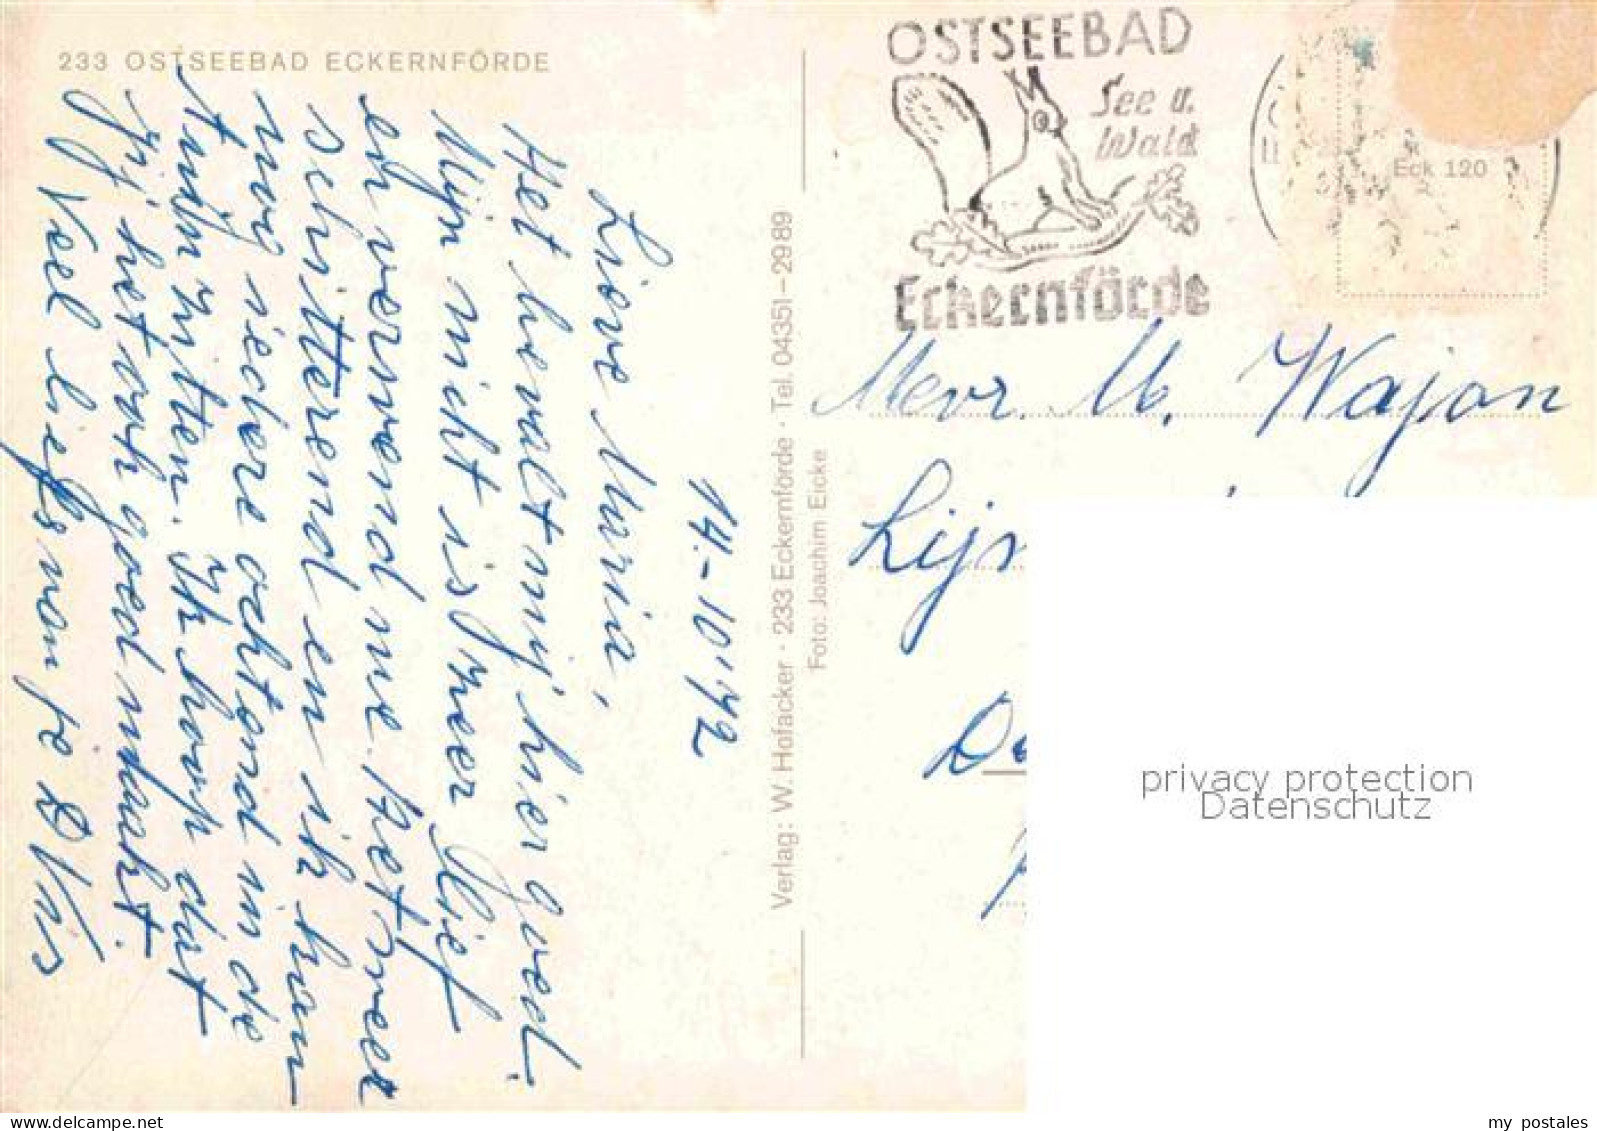 233 OSTSEEBAD ECKERNFÖRDE
OSTSEEBAD
See u.
Wald
Eckernförde
Eck 120
14-10'72
Lieve Maria,
Het bevalt mij hier goed.
Mijn nicht is zeer lief
en verwend me. Het weer
schitterend en ik kan
nog iedere ochtend in de
tuin zitten. Ik hoop dat
jij het ook goed maakt.
Veel liefs van je D Vis
Verlag: W. Hofacker · 233 Eckernförde · Tel. 04351-2989
Foto: Joachim Eicke
Mevr. M. Wajon
Lijn
privacy protection
Datenschutz
my postales
www.delcampe.net